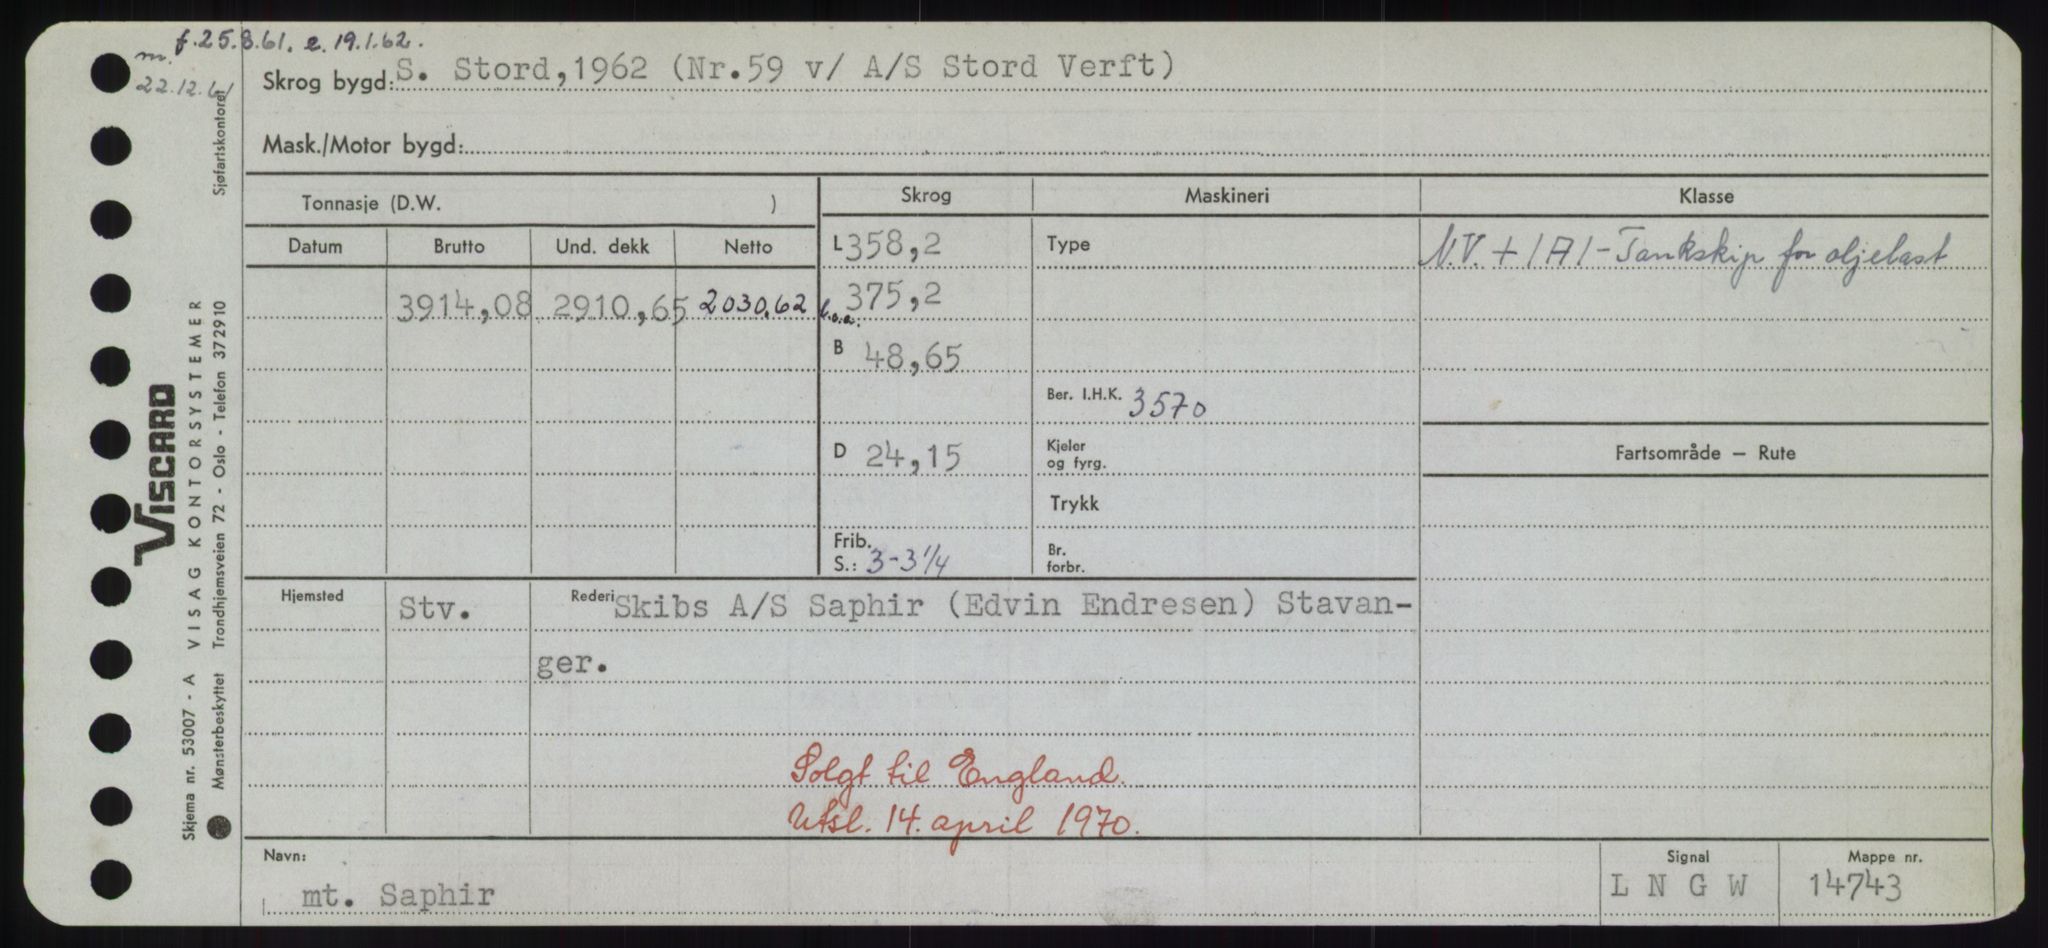 f. 25.8.61. e. 19.1.62.
m.
22.12.61
Skrog bygd: S. Stord,1962 (Nr.59 v/ A/S Stord Verft)
Mask./Motor bygd:
Tonnasje (D.W. ) Skrog Maskineri Klasse
Datum Brutto Und. dekk Netto L 358,2 Type N.V. + 1A1 - Tankskip for oljelast
3914,08 2910,65 2030.62 l.o.a. 375,2
B 48,65
Ber. I.H.K. 3570
D 24,15 Kjeler og fyrg. Fartsområde – Rute
Trykk
Frib. S.: 3-3 1/4 Br. forbr.
Hjemsted Stv. Rederi Skibs A/S Saphir (Edvin Endresen) Stavan-
ger.
Solgt til England.
Utsl. 14. april 1970.
Navn: Signal Mappe nr.
mt. Saphir L N G W 14743
VISCARD
Skjema nr. 53007 - A VISAG KONTORSYSTEMER
Mønsterbeskyttet Trondhjemsveien 72 - Oslo - Telefon 372910 Sjøfartskontoret